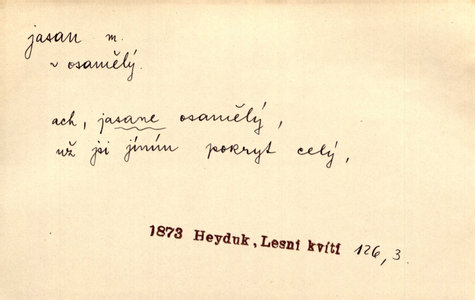 jasan m.
v osamělý.
ach, jasane osamělý,
už jsi jíním pokryt celý,
1873 Heyduk, Lesní kvítí 126, 3.